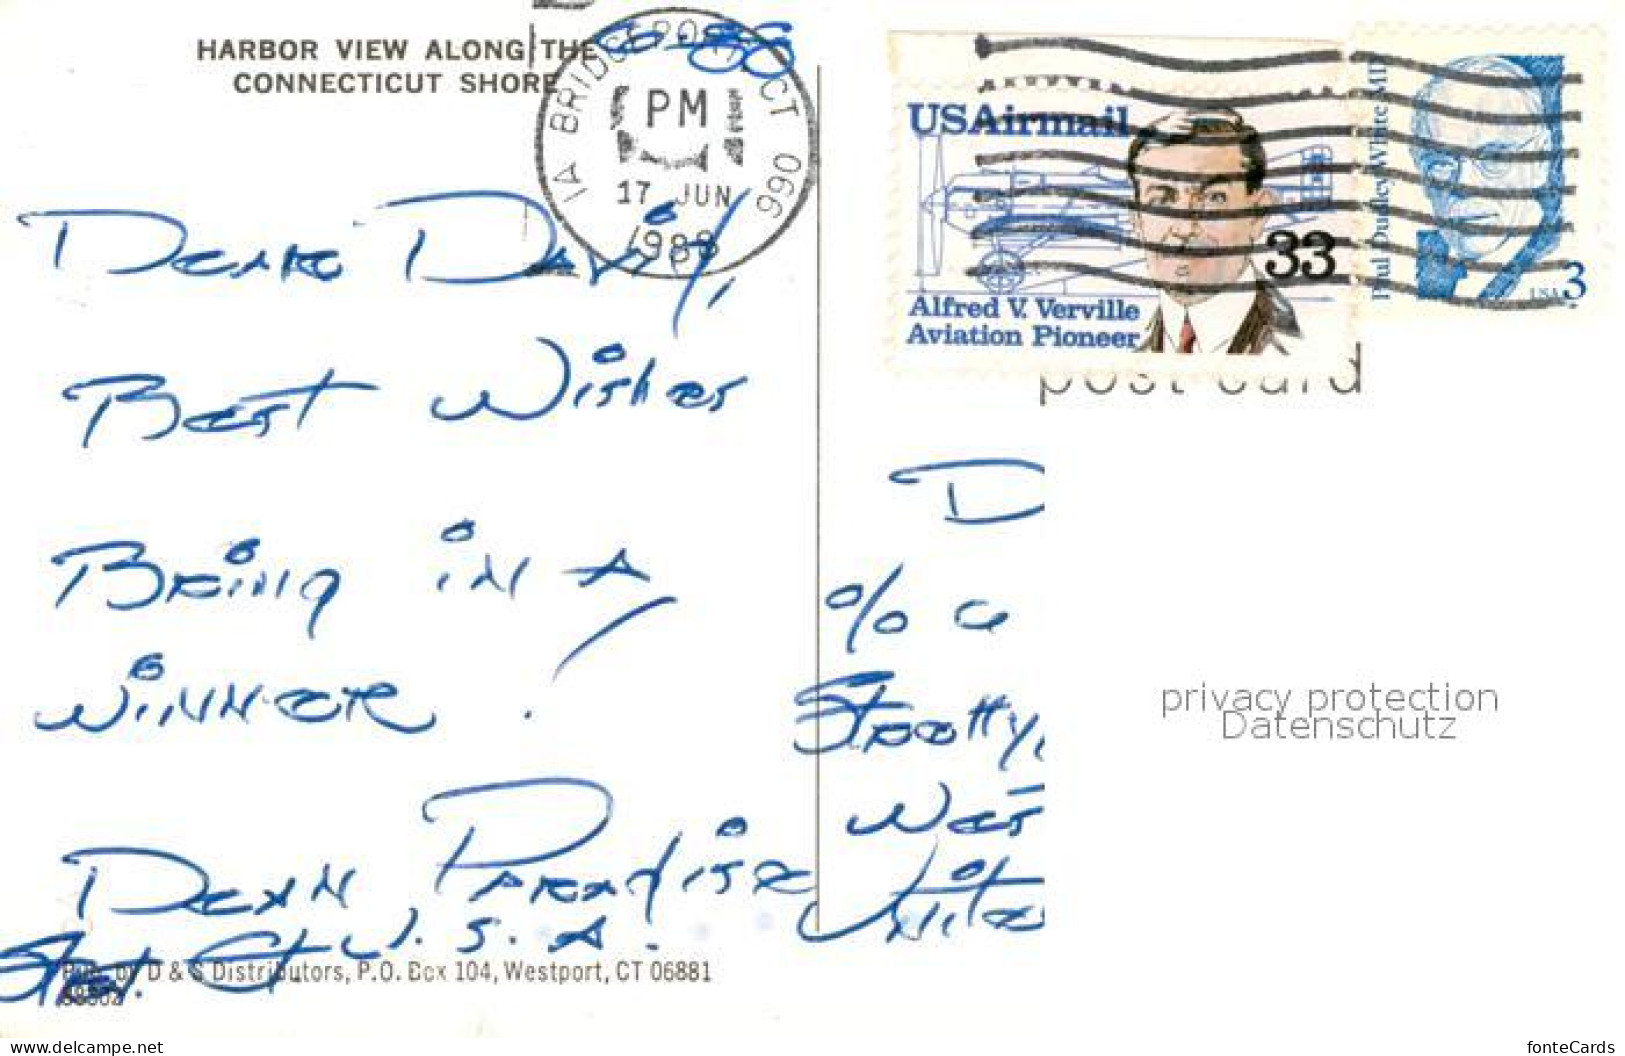 HARBOR VIEW ALONG THE
CONNECTICUT SHORE
6-88
VIA BRIDGEPORT CT 066
PM
17 JUN
1988
USAirmail
33
Alfred V. Verville
Aviation Pioneer
Paul Dudley White MD
USA 3
post card
Dear David,
Best Wishes
Bring in A
Winner.
Dean Paradise
Strat. Ct U.S.A.
D
% G
West
Unite
privacy protection
Datenschutz
Pub. by D & S Distributors, P.O. Box 104, Westport, CT 06881
www.delcampe.net
fonteCards